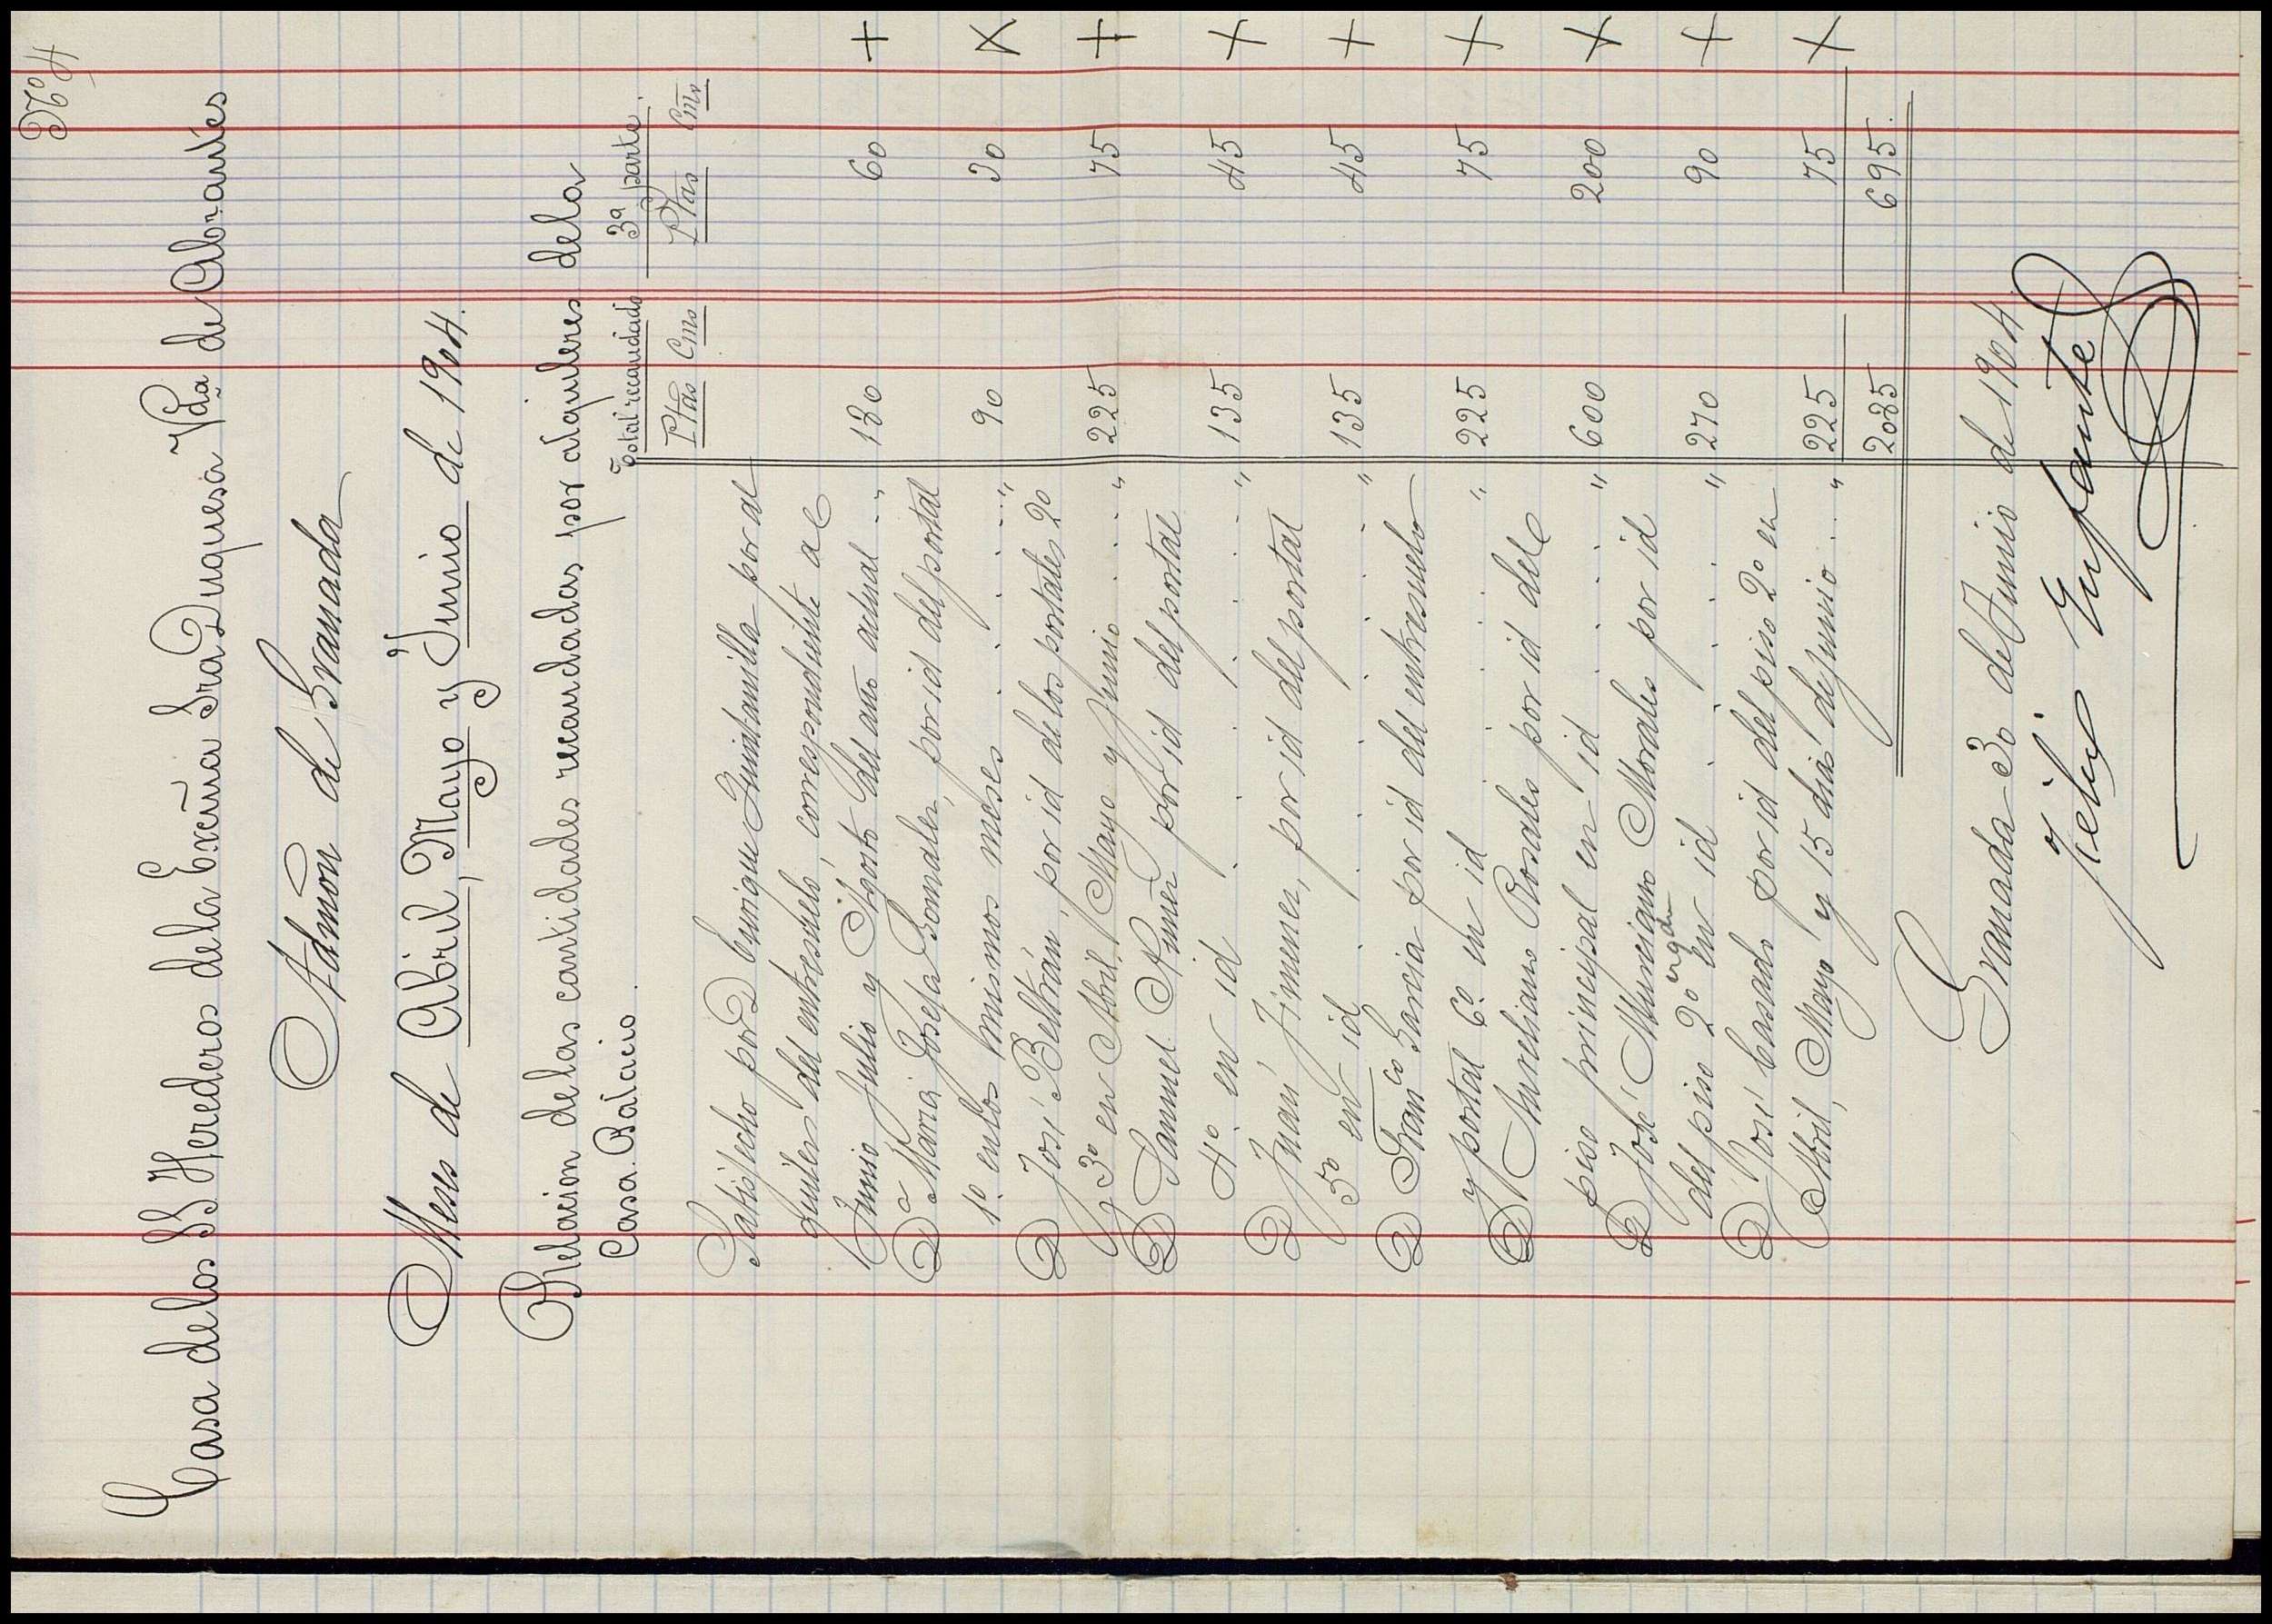 Nº 4
Casa de los SS Herederos de la Excma Sra Duquesa Vda de Abrantes
Admon de Granada
Meses de Abril, Mayo y Junio de 1904.
Relacion de las cantidades recaudadas, por alquileres de la
Casa Palacio.
Total recaudado 3ª parte.
Ptas Cms Ptas Cms
Satisfecho por D Enrique Quintanilla por al
quileres del entresuelo, correspondiente a
Junio Julio y Agosto del año actual . . " 180 60 +
Dª Maria Josefa Gonzalez, por id del portal
1º en los mismos meses . . . . " 90 30 X
D José Beltrán, por id de los portales 2º
y 3º en Abril, Mayo y Junio . . . " 225 75 +
D Samuel Nuñez por id del portal
4º en id . . . . . . " 135 45 +
D Juan Jimenez, por id del portal
5º en id . . . . . . " 135 45 +
D Franco Garcia por id del entresuelo
y portal 6º en id . . . . " 225 75 +
D Aureliano Rosales por id del
piso principal en id . . . . " 600 200 X
D José Munciano Morales por id
del piso 2º izqda en id . . . . " 270 90 +
D José Casado por id del piso 2º en
Abril, Mayo y 15 dias de Junio . . " 225 75 X
2085 695.
Granada 30 de Junio de 1904.
Felix Infante